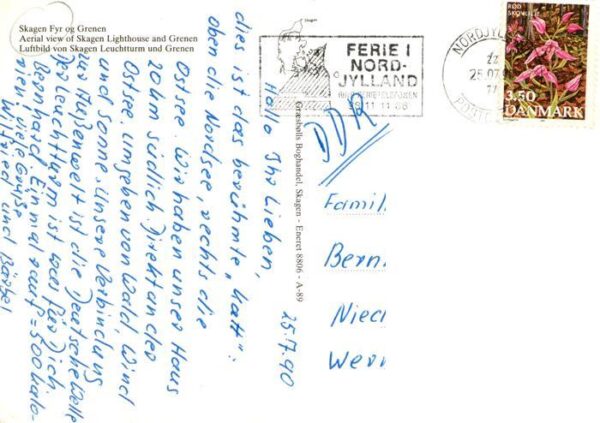 Skagen Fyr og Grenen
Aerial view of Skagen Lighthouse and Grenen
Luftbild von Skagen Leuchtturm und Grenen
25.7.90
Hallo Ihr Lieben,
dies ist das berühmte „Katt“:
oben die Nordsee, rechts die
Ostsee. Wir haben unser Haus
20 km südlich. Direkt an der
Ostsee, umgeben von Wald, Wind
und Sonne. Unsere Verbindung
zur Außenwelt ist die Deutsche Welle
Der Leuchtturm ist was für Dich
Bernhard. Einmal rauf = 500 Kalo-
rien. Viele Grüße
Wilfried und Bärbel
Græsbølls Boghandel, Skagen - Eneret 8806 - A-89
FERIE I
NORD-
JYLLAND
NORDJYL
25.07
POSTCE
RØD
3.50
DANMARK
DDR
Famil.
Bern.
Nied
Wern